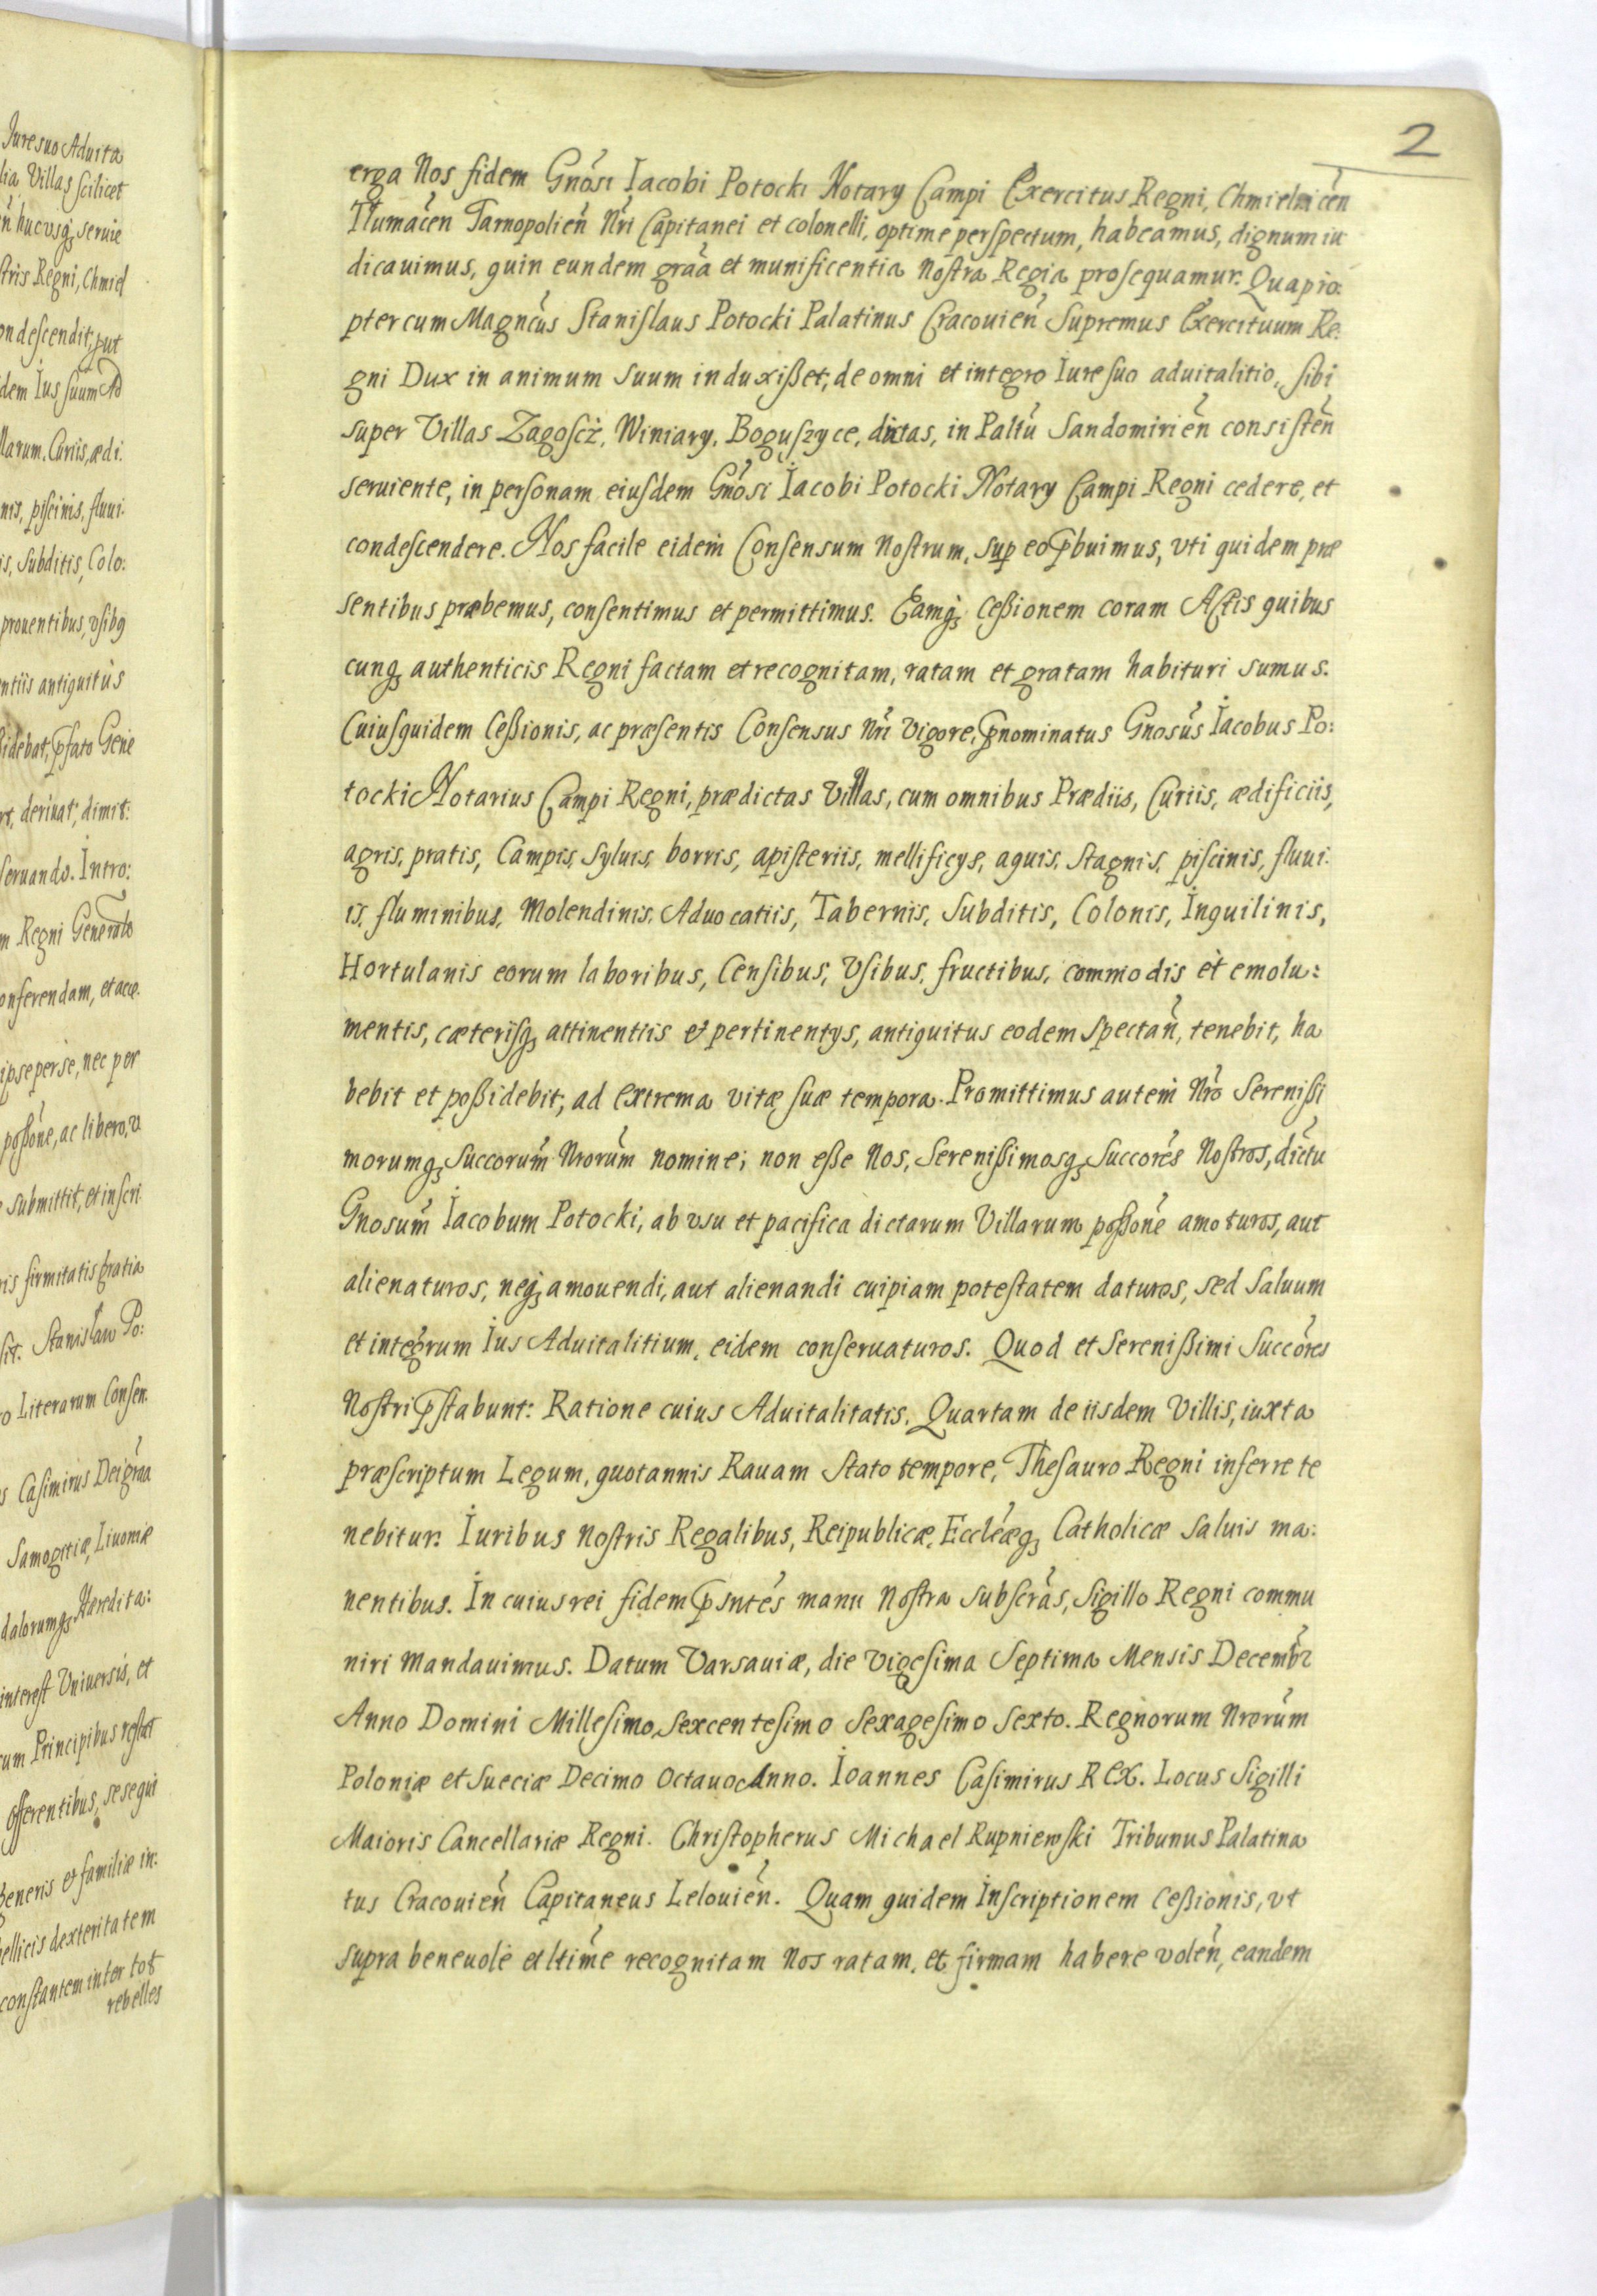 2
erga Nos fidem Gnosi Iacobi Potocki Notary Campi Exercitus Regni, Chmielnicen
Tłumacen Tarnopolien Nri Capitanei et colonelli, optime perspectum, habeamus, dignum iu
dicauimus, quin eundem graa et munificentia Nostra Regia prosequamur. Quapro:
pter cum Magncus Stanislaus Potocki Palatinus Cracouien Supremus Exercituum Re:
gni Dux in animum suum induxißet, de omni et integro Iure suo aduitalitio, sibi
super Villas Zagoscż, Winiary, Boguszyce, dictas, in Paltu Sandomirien consisten
seruiente, in personam eiusdem Gnosi Iacobi Potocki Notary Campi Regni cedere, et
condescendere. Nos facile eidem Consensum Nostrum, sup eo pbuimus, vti quidem præ
sentibus præbemus, consentimus et permittimus. Eamq3 Ceßionem coram Actis quibus
cunq3 authenticis Regni factam et recognitam, ratam et gratam habituri sumus.
Cuiusquidem Ceßionis, ac præsentis Consensus Nri vigore, pnominatus Gnosus Iacobus Po:
tocki Notarius Campi Regni, prædictas Villas, cum omnibus Prædiis, Curiis, ædificiis,
agris, pratis, Campis, Syluis, borris, apisteriis, mellificys, aquis, Stagnis, piscinis, fluui:
is, fluminibus, Molendinis, Aduocatiis, Tabernis, Subditis, Colonis, Inquilinis,
Hortulanis eorum laboribus, Censibus, Vsibus, fructibus, commodis et emolu:
mentis, cæterisq3 attinentiis et pertinentys, antiquitus eodem spectan, tenebit, ha
bebit et poßidebit, ad extrema vitæ suæ tempora. Promittimus autem Nro Serenißi
morumq3 Succorum Nrorum nomine, non eße Nos, Serenißimosq3 Succores Nostros, dictu
Gnosum Iacobum Potocki, ab vsu et pacifica dictarum Villarum poßone amoturos, aut
alienaturos, neq3 amouendi, aut alienandi cuipiam potestatem daturos, sed Saluum
et integrum Ius Aduitalitium, eidem conseruaturos. Quod et Serenißimi Succores
Nostri pstabunt: Ratione cuius Aduitalitatis, Quartam de iisdem Villis, iuxta
præscriptum Legum, quotannis Rauam Stato tempore, Thesauro Regni inferre te
nebitur. Iuribus Nostris Regalibus, Reipublicæ, Eccleæq3 Catholicæ Saluis ma:
nentibus. In cuius rei fidem psntes manu Nostra Subscras, Sigillo Regni commu
niri mandauimus. Datum Varsauiæ, die Vigesima Septima Mensis Decembr
Anno Domini Millesimo Sexcentesimo Sexagesimo Sexto. Regnorum Nrorum
Poloniæ et Sueciæ Decimo Octauo Anno. Ioannes Casimirus Rex. Locus Sigilli
Maioris Cancellariæ Regni. Christopherus Michael Rupniewski Tribunus Palatina
tus Cracouien Capitaneus Lelouien. Quam quidem Inscriptionem Ceßionis, vt
supra beneuole et ltime recognitam Nos ratam, et firmam habere volen, eandem